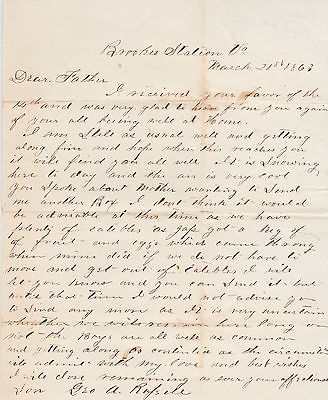 Brookes Station Va
March 21st 1863
Dear Father
I received your favor of the
14th and was very glad to hear from you again
of your all being well at home.
I am Still as usual well and getting
along fine and hope when this reaches you
it will find you all well It is Snowing
here to day and the air is very cool
You Spoke about Mother wanting to Send
me another Box I dont think it would
be advisable at this time as we have
plenty of eatibles as Jap got a Keg of
of fruit and eggs which came through
when mine did if we do not have to
move and get out of Eatibles I will
let you know and you can Send it but
at this time I would not advise you
to Send any more as it is very uncertain
whether we will remain here long or
not the Boys are all well as common
and getting along as contented as the circumstances
will admit with my love and best wishes
I will close remaining as ever your affectionate
Son Geo A.